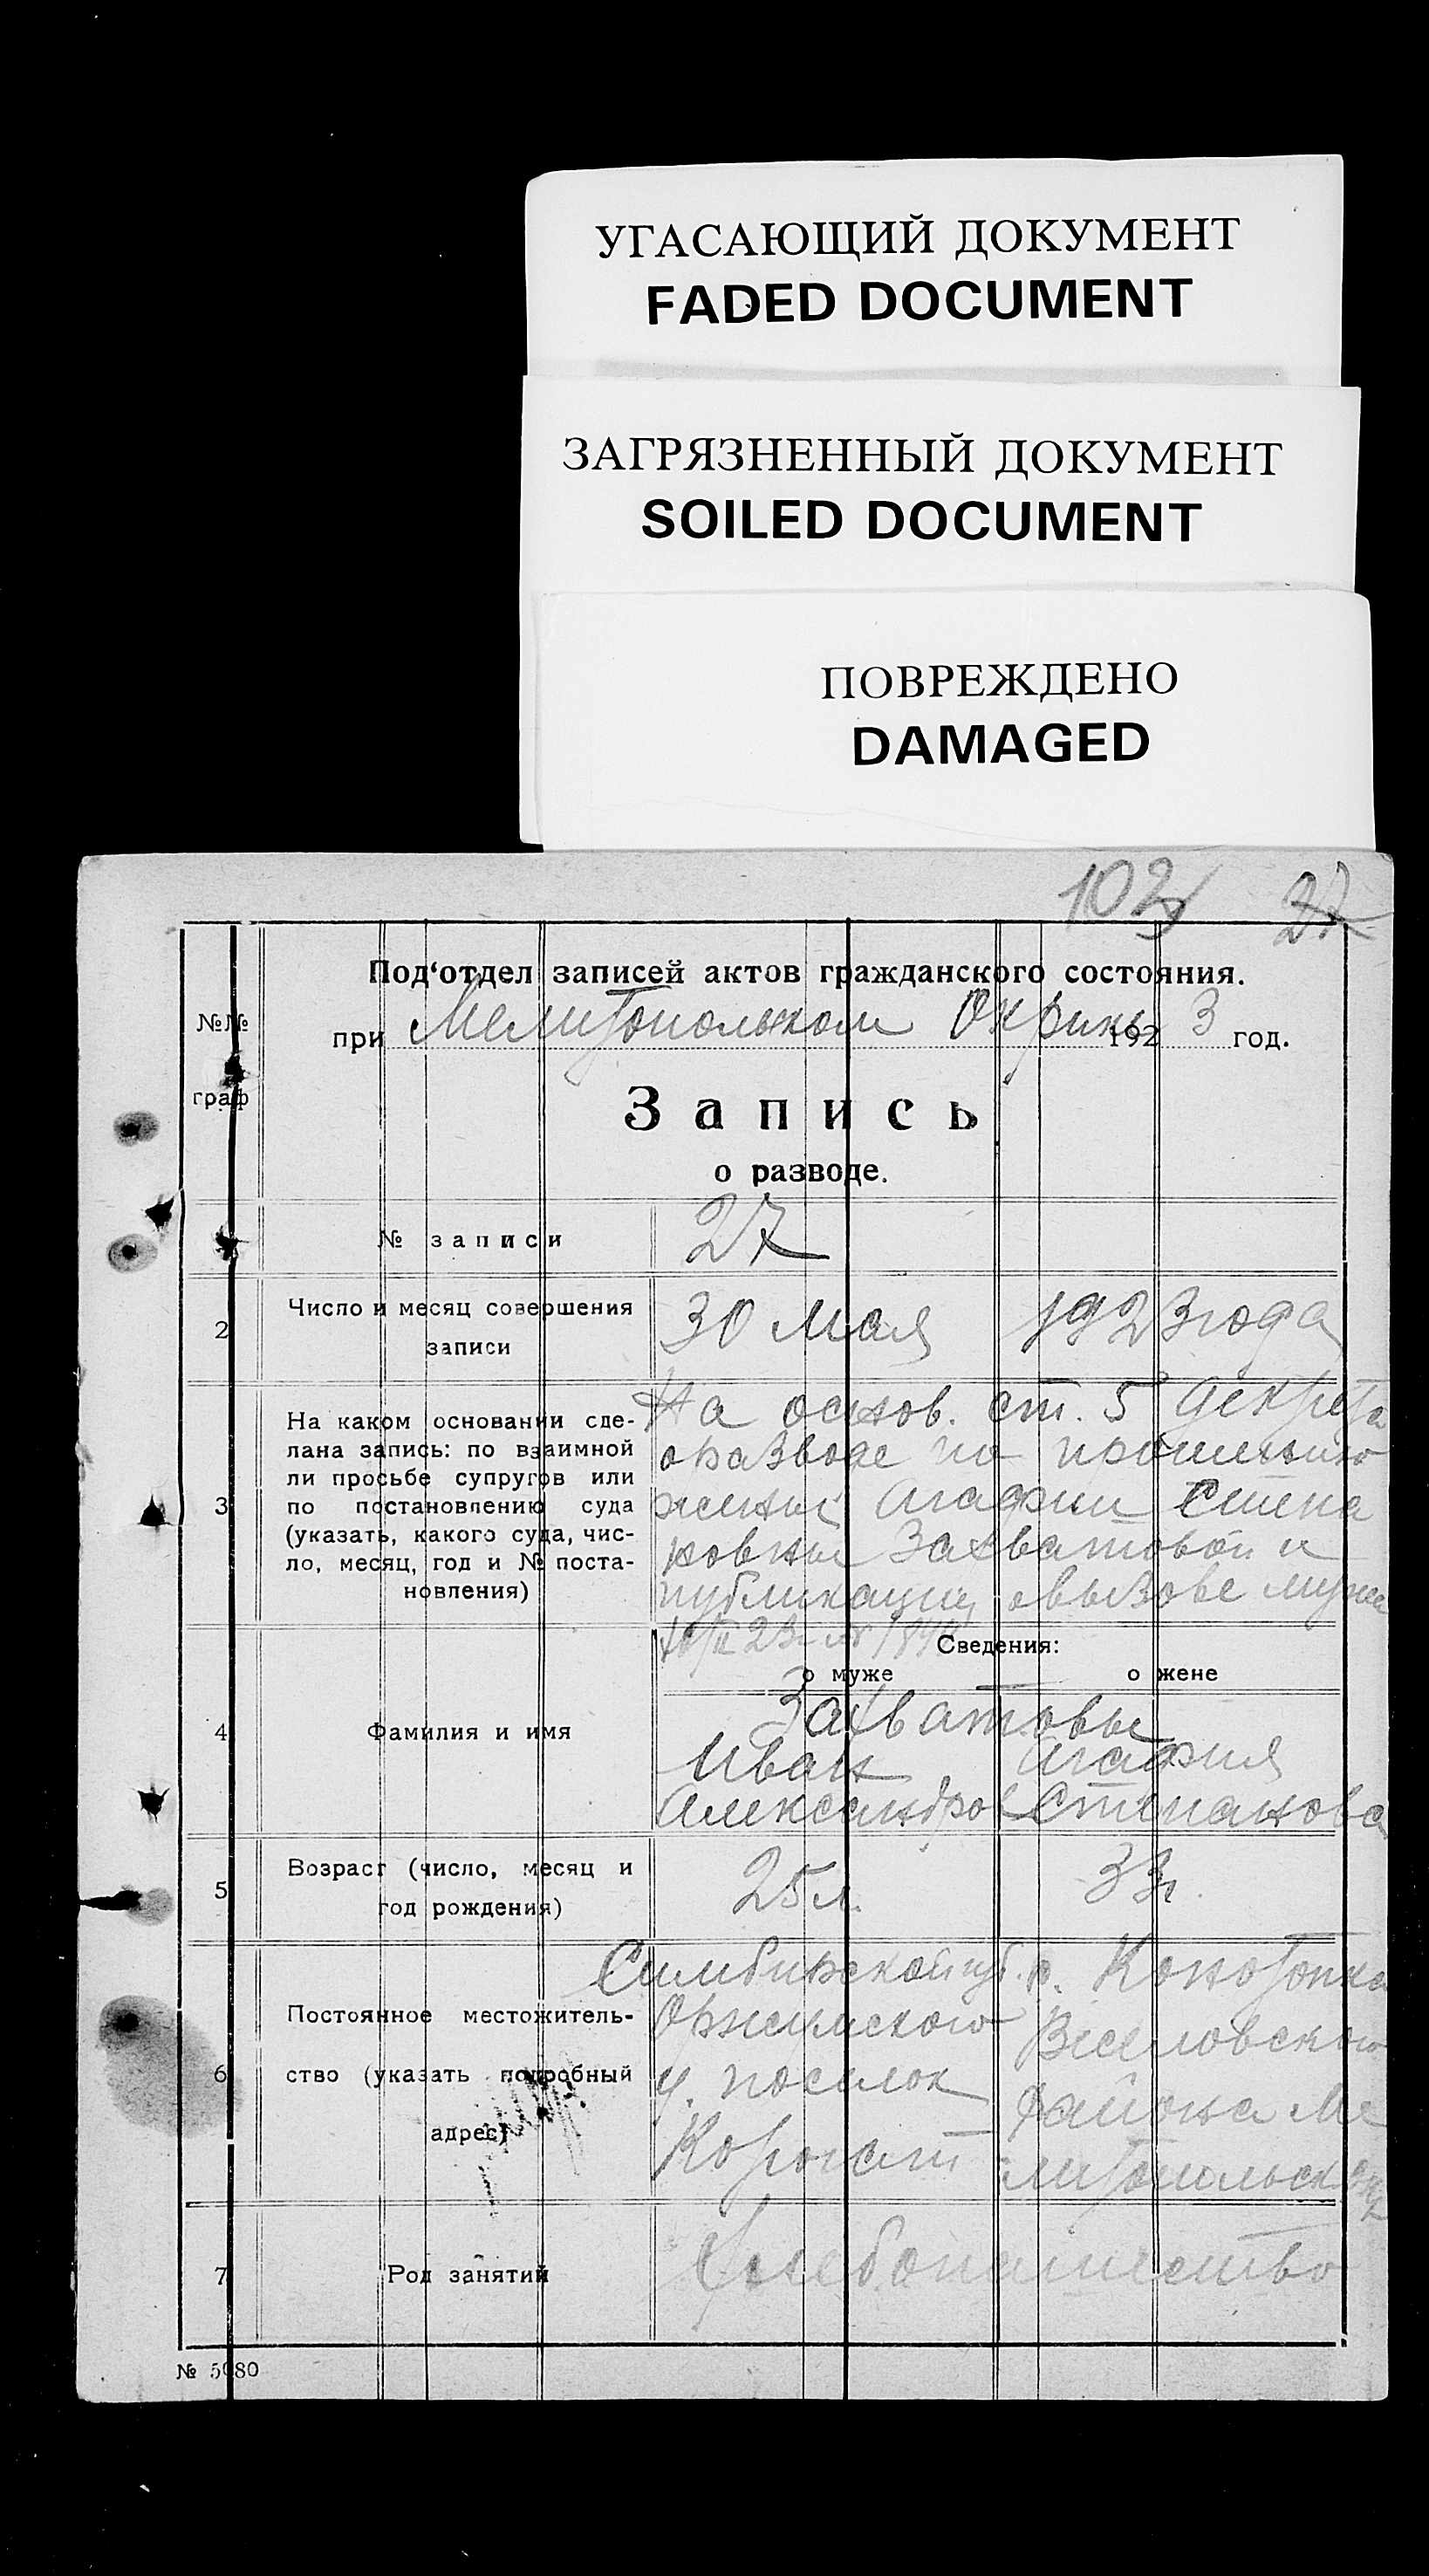 УГАСАЮЩИЙ ДОКУМЕНТ
FADED DOCUMENT
ЗАГРЯЗНЕННЫЙ ДОКУМЕНТ
SOILED DOCUMENT
ПОВРЕЖДЕНО
DAMAGED
102 27
Под‘отдел записей актов гражданского состояния.
№№ граф
при Мелитопольском Окрике 1923 год.
Запись
о разводе.
№ записи 27
2 Число и месяц совершения записи
30 Мая 1923 года
3 На каком основании сде-
лана запись: по взаимной
ли просьбе супругов или
по постановлению суда
(указать, какого суда, чис-
ло, месяц, год и № поста-
новления)
На основ. ст. 5 декрета
о разводе по прошению
жены Агафии Степа
новны Захватовой и
публикации о вызове мужа
Сведения:
о муже о жене
4 Фамилия и имя
Захватовы
Иван Агафия
Александров Степанова
5 Возраст (число, месяц и
год рождения)
25 л. 33 г.
6 Постоянное местожитель-
ство (указать подробный
адрес)
Симбирской губ.
у. поселок
с. Конотопка
Веселовского
района Ме
литопольск. окр
7 Род занятий
Хлебопашество
№ 5080